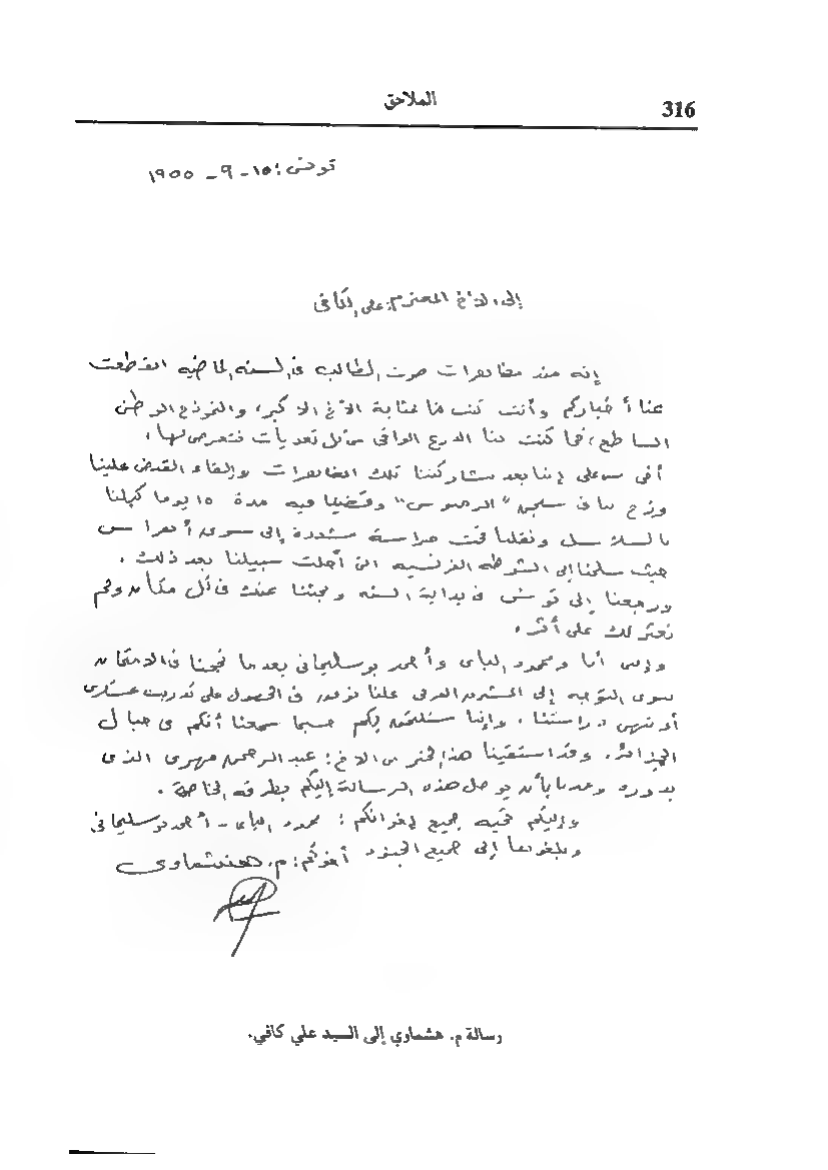 316
الملاحق
تونس: ١٥ - ٩ - ١٩٥٥
إلى الأخ المحترم: علي الكافي
إنه منذ مظاهرات صوت الطالب في السنة الماضية انقطعت
عنا أخباركم وأنت كنت لنا بمثابة الأخ الأكبر، والنموذج الوطني
الساطع، كما كنت لنا الدرع الواقي من كل تعديات نتعرض لها.
أخي سي علي إننا بعد مشاركتنا تلك المظاهرات وإلقاء القبض علينا
وزج بنا في سجن "الرصوص" وقضينا فيه مدة ١٥ يوما كبلنا
بالسلاسل ونقلنا تحت حراسة مشددة إلى سوق أهراس
حيث سلمنا إلى الشرطة الفرنسية التي أخلت سبيلنا بعد ذلك.
ورجعنا إلى تونس في بداية السنة وبحثنا عنك في كل مكان ولم
نعثر لك على أثر.
وإني أنا ومحمود الباي وأحمد بوسليماني بعدما نجحنا في الامتحان
ننوي التوجه إلى المشرق العربي علنا نوفق في الحصول على تدريب عسكري
أو ننهي دراستنا. وإننا سنلتحق بكم حسبما سمعنا أنكم في جبال
الجزائر. وقد استقينا هذا الخبر من الأخ: عبد الرحمن مهري الذي
بدوره وعدنا بأن يوصل هذه الرسالة إليكم بطرقه الخاصة.
وإليكم تحية جميع إخوانكم: محمود الباي - أحمد بوسليماني
وبلغوها إلى جميع الجنود أخوكم: م. هشماوي
رسالة م. هشماوي إلى السيد علي كافي.